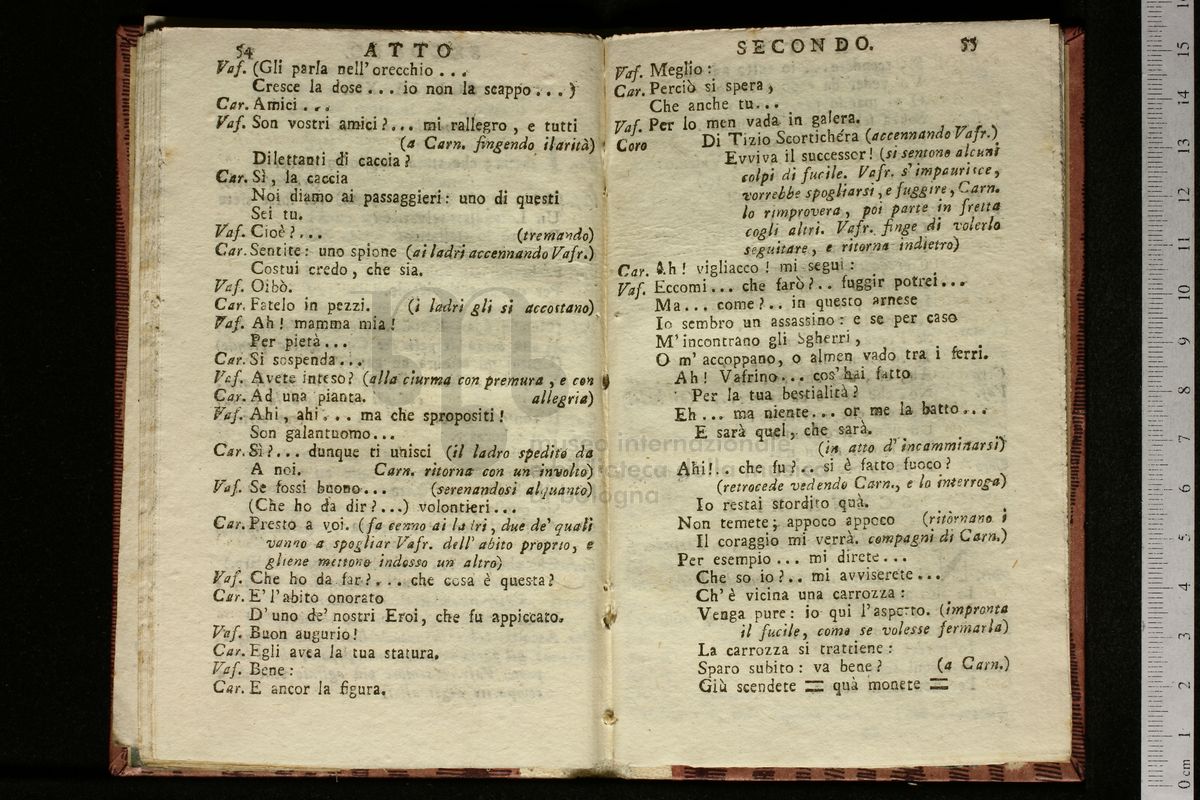 54 ATTO
Vaf. (Gli parla nell' orecchio ...
Cresce la dose ... io non la scappo ... )
Car. Amici ...
Vaf. Son vostri amici ?... mi rallegro , e tutti
(a Carn. fingendo ilarità)
Dilettanti di caccia ?
Car. Sì , la caccia
Noi diamo ai passaggieri : uno di questi
Sei tu.
Vaf. Cioè ?... (tremando)
Car. Sentite : uno spione (ai ladri accennando Vafr.)
Costui credo , che sia.
Vaf. Oibò.
Car. Fatelo in pezzi. (i ladri gli si accostano)
Vaf. Ah ! mamma mia !
Per pietà ...
Car. Si sospenda ...
Vaf. Avete inteso ? (alla ciurma con premura , e con
Car. Ad una pianta. allegria)
Vaf. Ahi , ahi ... ma che spropositi !
Son galantuomo ...
Car. Sì ?... dunque ti unisci (il ladro spedito da
A noi. Carn. ritorna con un involto)
Vaf. Se fossi buono ... (serenandosi alquanto)
(Che ho da dir ?...) volontieri ...
Car. Presto a voi. (fa cenno ai ladri , due de' quali
vanno a spogliar Vafr. dell' abito proprio, e
gliene mettono indosso un altro)
Vaf. Che ho da far ?... che cosa è questa ?
Car. E' l'abito onorato
D' uno de' nostri Eroi , che fu appiccato.
Vaf. Buon augurio !
Car. Egli avea la tua statura.
Vaf. Bene :
Car. E ancor la figura.
SECONDO. 55
Vaf. Meglio :
Car. Perciò si spera ,
Che anche tu ...
Vaf. Per lo men vada in galera.
Coro Di Tizio Scortichéra (accennando Vafr.)
Evviva il successor ! (si sentono alcuni
colpi di fucile. Vafr. s' impaurisce ,
vorrebbe spogliarsi , e fuggire , Carn.
lo rimprovera , poi parte in fretta
cogli altri. Vafr. finge di volerlo
seguitare , e ritorna indietro)
Car. Ah ! vigliacco ! mi segui :
Vaf. Eccomi ... che farò ?.. fuggir potrei ...
Ma ... come ?.. in questo arnese
Io sembro un assassino : e se per caso
M' incontrano gli Sgherri ,
O m' accoppano, o almen vado tra i ferri.
Ah ! Vafrino ... cos' hai fatto
Per la tua bestialità ?
Eh ... ma niente ... or me la batto ...
E sarà quel, che sarà.
(in atto d' incamminarsi)
Ahi !.. che fu ?.. si è fatto fuoco ?
(retrocede vedendo Carn., e lo interroga)
Io restai stordito quà.
Non temete ; appoco appoco (ritornano i
Il coraggio mi verrà. compagni di Carn.)
Per esempio ... mi direte ...
Che so io ?.. mi avviserete ...
Ch' è vicina una carrozza :
Venga pure : io qui l'aspetto. (impronta
il fucile, come se volesse fermarla)
La carrozza si trattiene :
Sparo subito : va bene ? (a Carn.)
Giù scendete = quà monete =
museo internazionale
biblioteca
bologna
0 cm 1 2 3 4 5 6 7 8 9 10 11 12 13 14 15